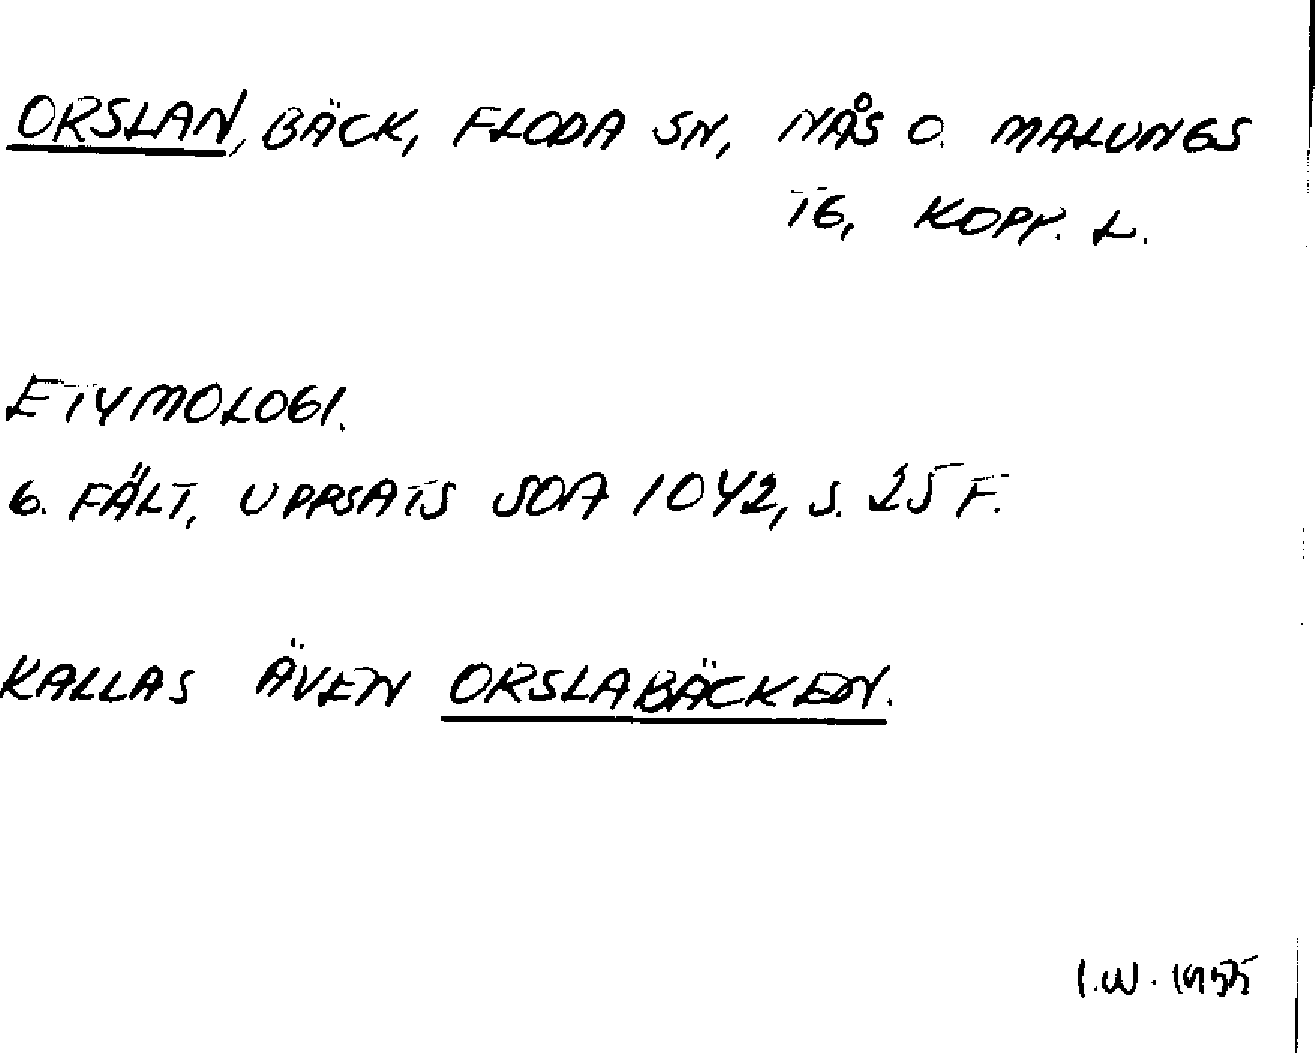 ORSLAN, BÄCK, FLODA SN, NÅS O. MALUNGS
TG, KOPP. L.
ETYMOLOGI.
G. FÄLT, UPPSATS SOA 1042, S. 25 F.
KALLAS ÄVEN ORSLABÄCKEN.
I.W. 1955